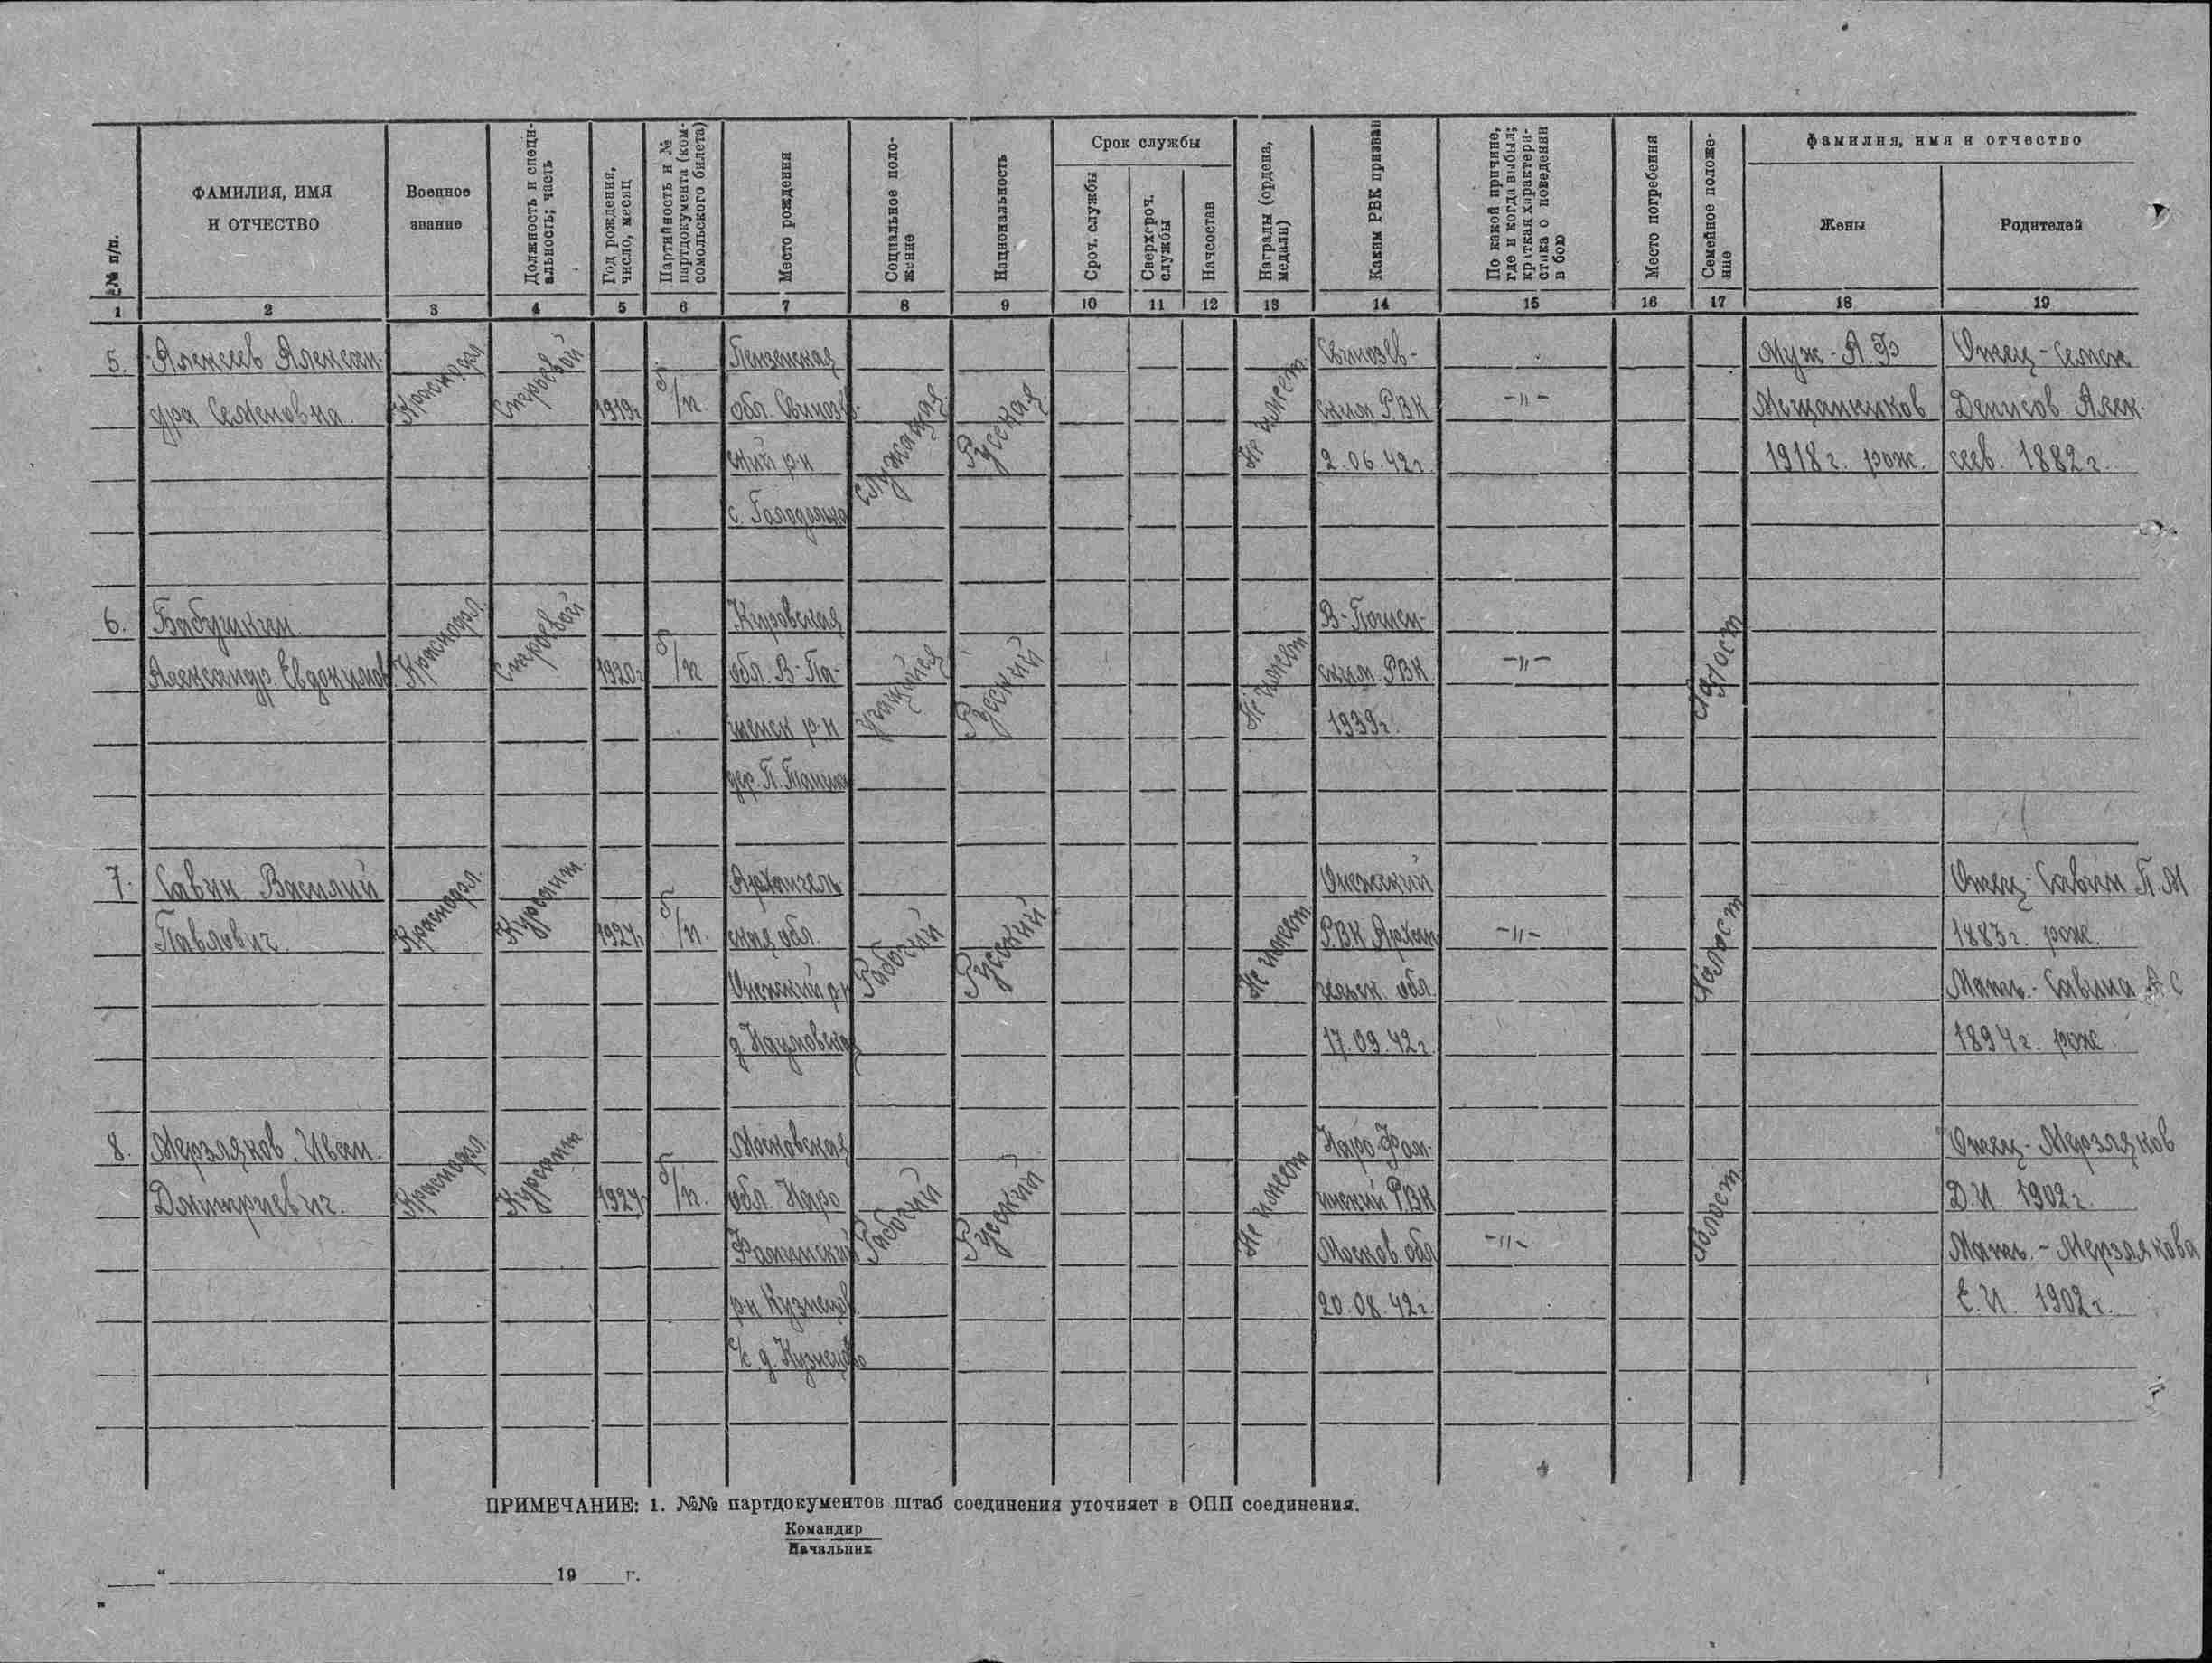 № п/п.
ФАМИЛИЯ, ИМЯ
И ОТЧЕСТВО
Военное
звание
Должность и специ-
альность; часть
Год рождения,
число, месяц
Партийность и №
партдокумента (ком-
сомольского билета)
Место рождения
Социальное поло-
жение
Национальность
Срок службы
Сроч. службы
Сверхсроч.
службы
Начсостав
Награды (ордена,
медали)
Каким РВК призван
По какой причине,
где и когда выбыл;
краткая характери-
стика о поведении
в бою
Место погребения
Семейное положе-
ние
фамилия, имя и отчество
Жены
Родителей
1 2 3 4 5 6 7 8 9 10 11 12 13 14 15 16 17 18 19
5.
Алексеев Алексан-
дра Семеновна.
Красноарм
Строевой
1919г
б/п.
Пензенская
обл. Свинозе-
ский р-н
с.
Служащая
Русская
Не имеет.
ским РВК
2.06.42г.
-〃-
Муж - А.Ф
Мещанинов
1918 г. рож.
Отец - Семен
Денисов Алек-
сеев. 1882 г.
6.
Бабушкин
Александр Евдокимов
Красноарм
Строевой
1920г
б/п
Кировская
обл. В-По-
шенск р-н
дер. П.
Учащийся
Русский
Не имеет
В-Пошен-
ским РВК
1939г.
-〃-
Холост
7.
Савин Василий
Павлович.
Красноарм
Курсант
1924г
б/п.
Архангель
ская обл.
Онежский р-н
д. Наумовская
Рабочий
Русский
Не имеет
Онежский
РВК Архан
гельск. обл.
17.09.42г.
-〃-
Холост
Отец - Савин П.М
1883г. рож.
Мать - Савина А.С
1894г. рож
8.
Мерзляков Иван
Дмитриевич.
Красноарм
Курсант
1924г
б/п.
Московская
обл. Наро
Фоминский
р-н Кузнецов
с/с д. Кузнецово
Рабочий
Русский
Не имеет
Наро-Фом-
инский РВК
Москов. обл
20.08.42г.
-〃-
Холост
Отец - Мерзляков
Д.И. 1902г.
Мать - Мерзлякова
Е.И 1902г.
ПРИМЕЧАНИЕ: 1. №№ партдокументов штаб соединения уточняет в ОПП соединения.
Командир
Начальник
"
19 г.